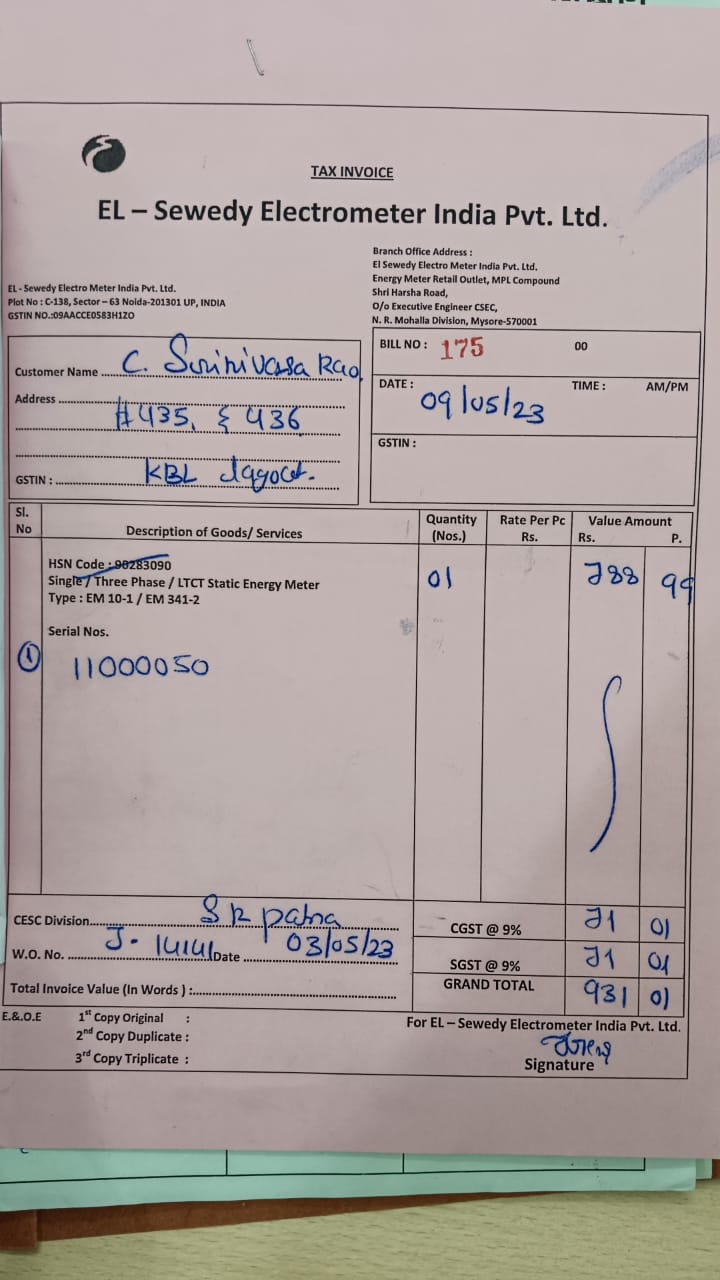 TAX INVOICE
EL – Sewedy Electrometer India Pvt. Ltd.
EL - Sewedy Electro Meter India Pvt. Ltd.
Plot No : C-138, Sector – 63 Noida-201301 UP, INDIA
GSTIN NO.:09AACCE0583H1ZO
Branch Office Address :
El Sewedy Electro Meter India Pvt. Ltd.
Energy Meter Retail Outlet, MPL Compound
Shri Harsha Road,
O/o Executive Engineer CSEC,
N. R. Mohalla Division, Mysore-570001
Customer Name C. Srinivasa Rao
Address #435, & 436
KBL
GSTIN :
BILL NO : 175 00
DATE : 09/05/23 TIME : AM/PM
GSTIN :
Sl. No Description of Goods/ Services Quantity (Nos.) Rate Per Pc Rs. Value Amount Rs. P.
HSN Code : 90283090
Single / Three Phase / LTCT Static Energy Meter 01 788 99
Type : EM 10-1 / EM 341-2
Serial Nos.
1 11000050
CESC Division S R patna
CGST @ 9% 71 01
W.O. No. J- 14141 Date 03/05/23
SGST @ 9% 71 01
Total Invoice Value (In Words ) :
GRAND TOTAL 931 01
E.&.O.E 1st Copy Original :
2nd Copy Duplicate :
3rd Copy Triplicate :
For EL – Sewedy Electrometer India Pvt. Ltd.
Signature